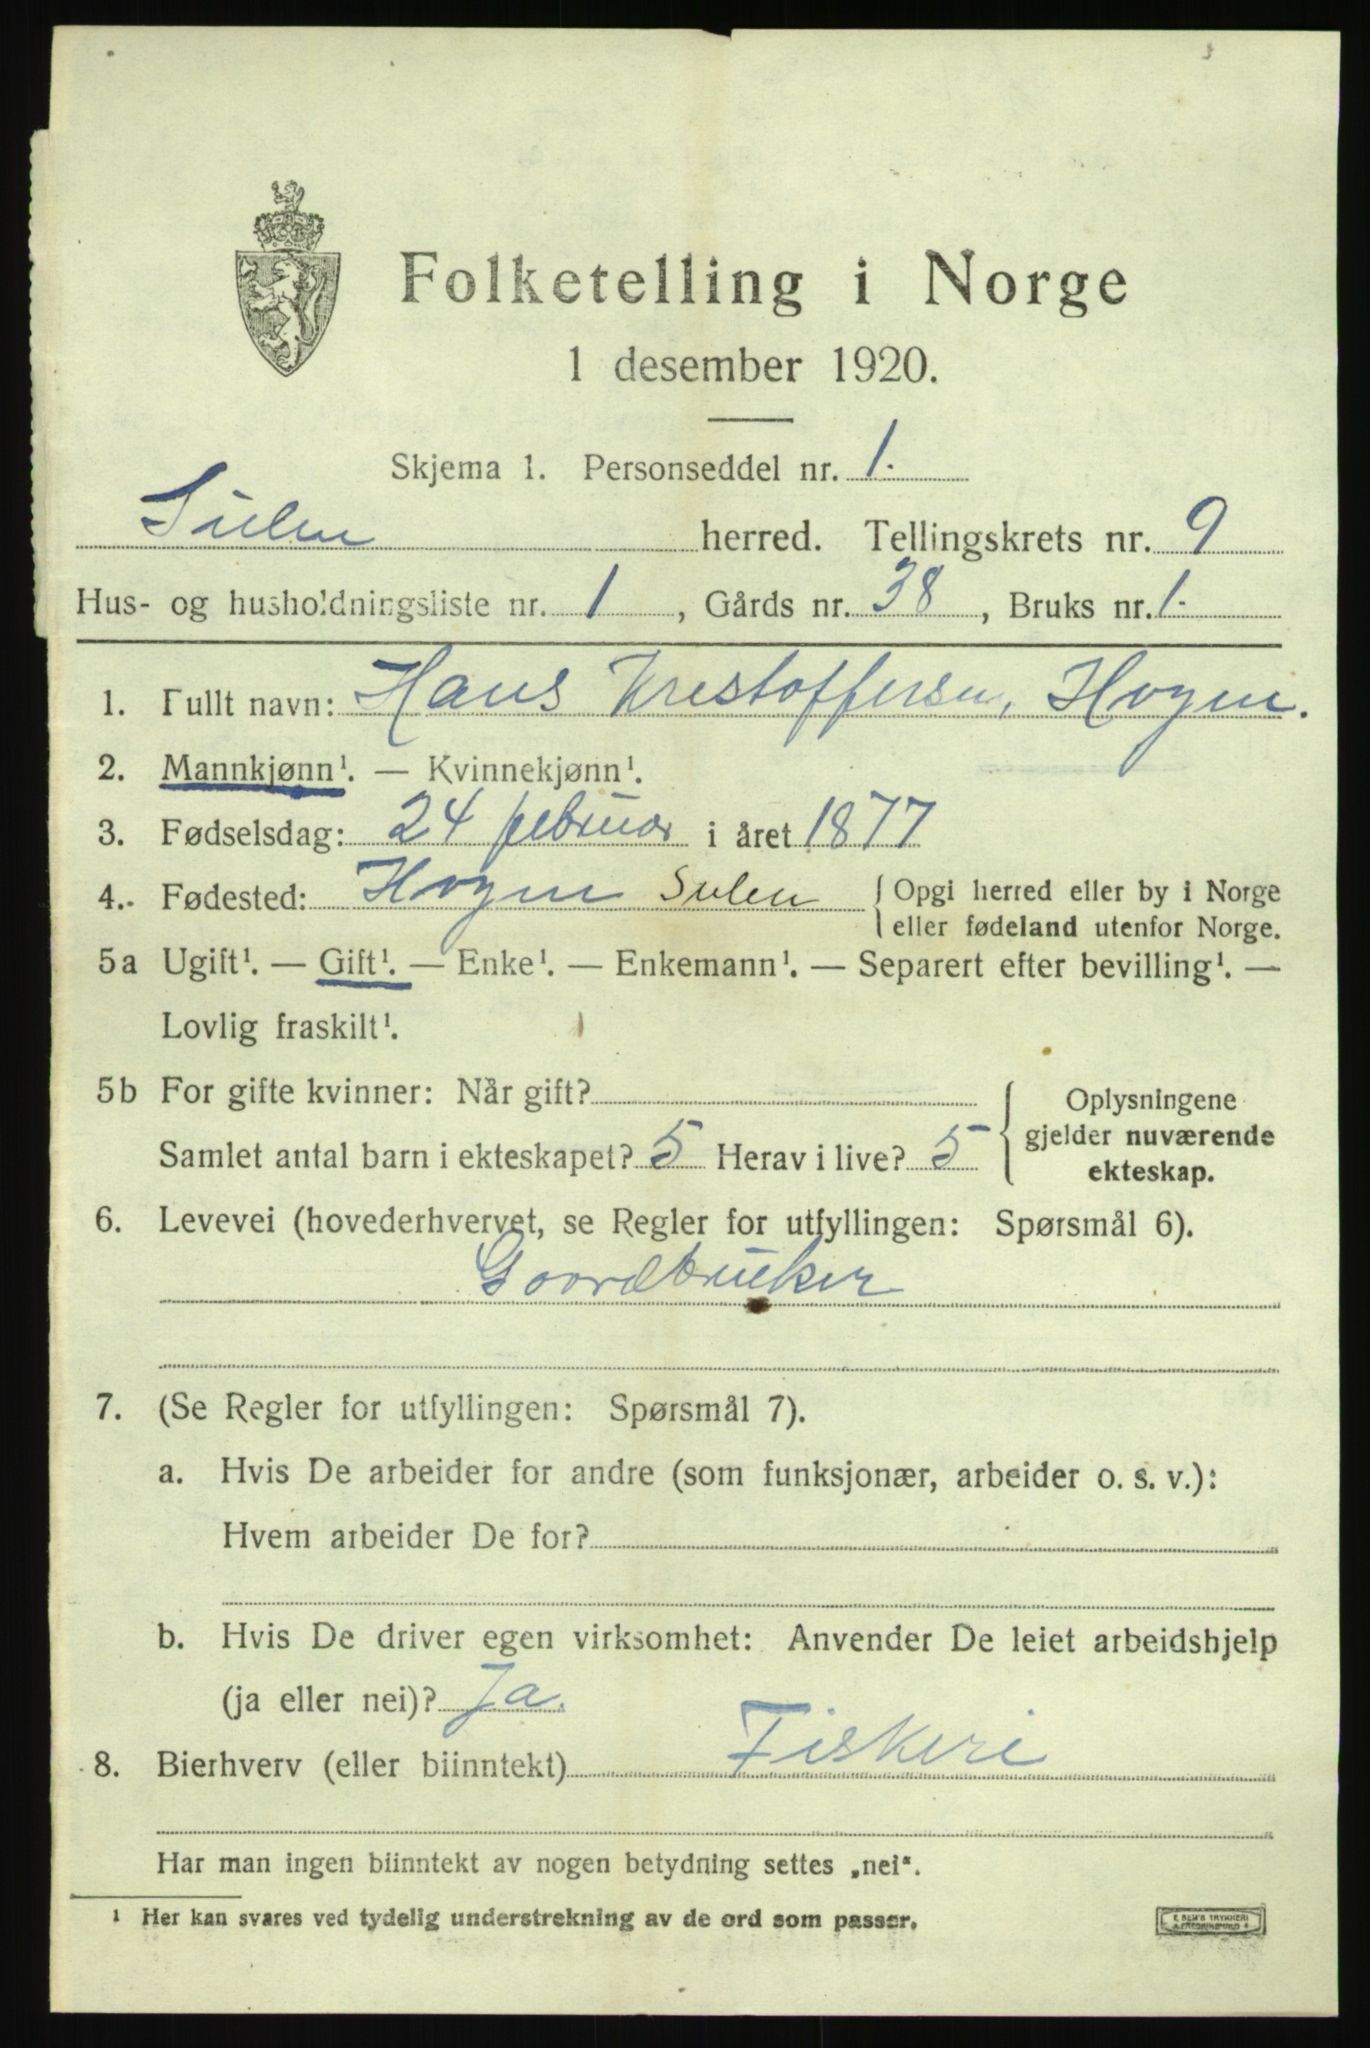 Folketelling i Norge
1 desember 1920.
Skjema 1. Personseddel nr. 1.
Sulen herred. Tellingskrets nr. 9
Hus- og husholdningsliste nr. 1, Gårds nr. 38, Bruks nr. 1.
1. Fullt navn: Hans Krestoffersen, Hogen.
2. Mannkjønn¹. — Kvinnekjønn¹.
3. Fødselsdag: 24 februar i året 1877
4. Fødested: Hogen Sulen { Opgi herred eller by i Norge
eller fødeland utenfor Norge.
5a Ugift¹. — Gift¹. — Enke¹. — Enkemann¹. — Separert efter bevilling¹. —
Lovlig fraskilt¹.
5b For gifte kvinner: Når gift?
Samlet antal barn i ekteskapet? 5 Herav i live? 5
{ Oplysningene
gjelder nuværende
ekteskap.
6. Levevei (hovederhvervet, se Regler for utfyllingen: Spørsmål 6).
Goordbruker
7. (Se Regler for utfyllingen: Spørsmål 7).
a. Hvis De arbeider for andre (som funksjonær, arbeider o. s. v.):
Hvem arbeider De for?
b. Hvis De driver egen virksomhet: Anvender De leiet arbeidshjelp
(ja eller nei)? Ja.
8. Bierhverv (eller biinntekt) Fiskeri
Har man ingen biinntekt av nogen betydning settes „nei“.
¹ Her kan svares ved tydelig understrekning av de ord som passer.